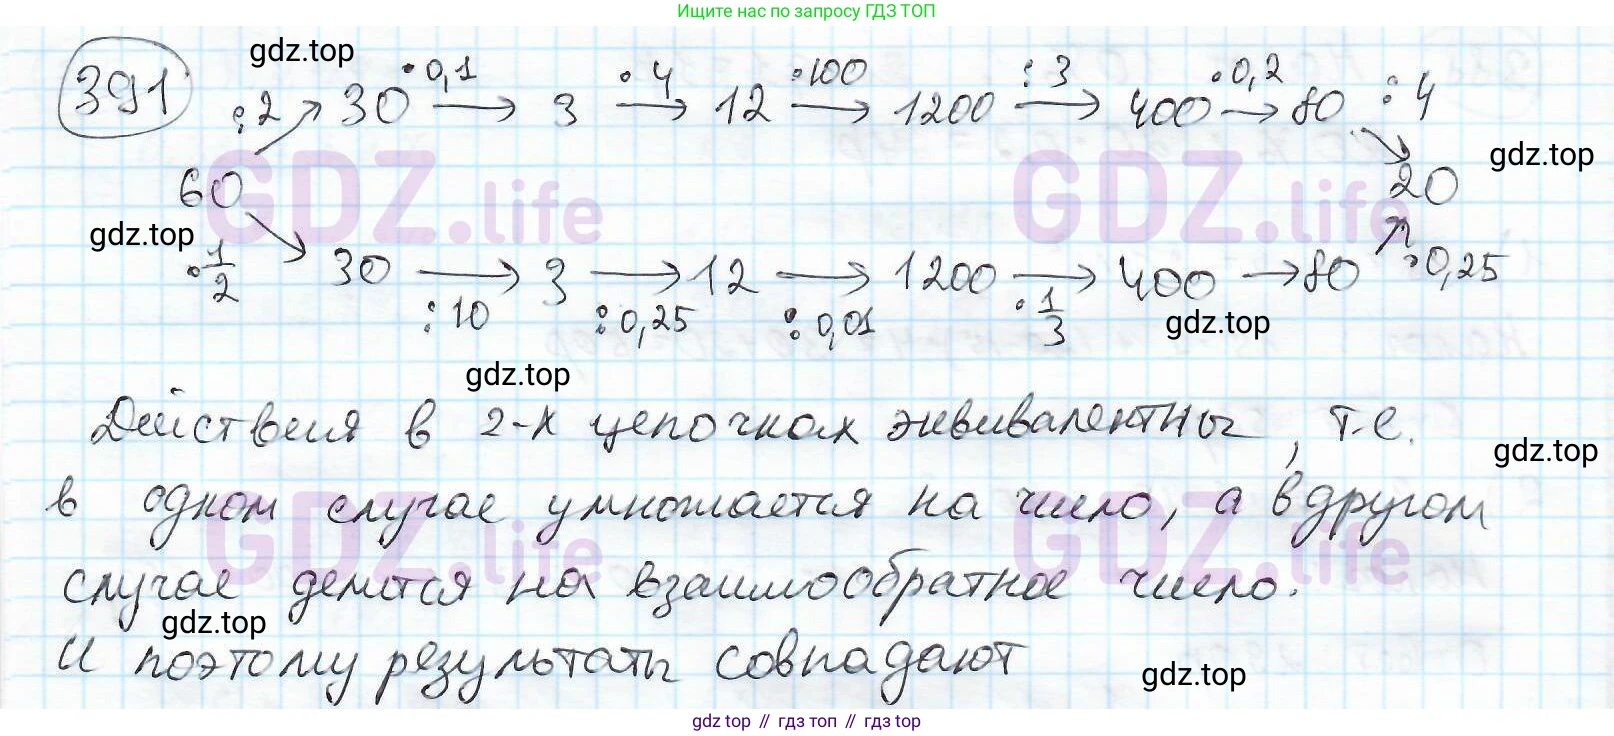 Ищите нас по запросу ГДЗ ТОП
391
gdz.top
:2 30 ·0,1 → 3 ·4 → 12 ·100 → 1200 :3 → 400 ·0,2 → 80 :4
60 20
gdz.top
gdz.top
·1/2 30 → :10 3 → :0,25 12 → :0,01 1200 → ·1/3 400 → 80 ·0,25
gdz.top
gdz.top
GDZ.life GDZ.life
Действия в 2-х цепочках эквивалентны, т.е.
gdz.top
в одном случае умножается на число, а в другом
GDZ.life GDZ.life
случае делится на взаимообратное число.
gdz.top
И поэтому результаты совпадают
gdz.top
gdz top // гдз топ // гдз top